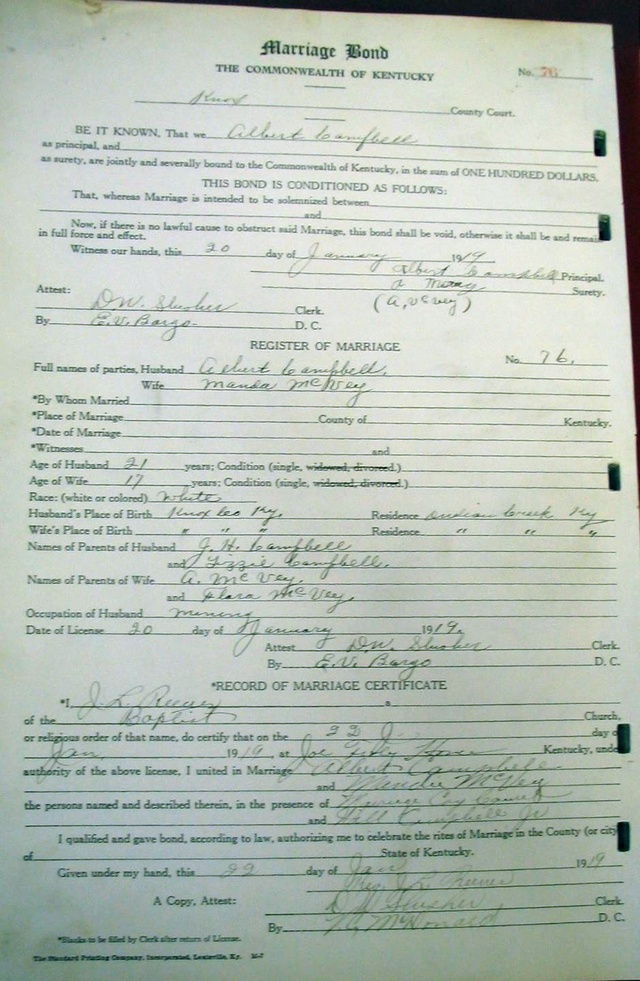 Marriage Bond
THE COMMONWEALTH OF KENTUCKY
No. 76
Knox County Court.
BE IT KNOWN, That we Albert Campbell
as principal, and
as surety, are jointly and severally bound to the Commonwealth of Kentucky, in the sum of ONE HUNDRED DOLLARS.
THIS BOND IS CONDITIONED AS FOLLOWS:
That, whereas Marriage is intended to be solemnized between
and
Now, if there is no lawful cause to obstruct said Marriage, this bond shall be void, otherwise it shall be and remain
in full force and effect.
Witness our hands, this 20 day of January 1919
Albert Campbell Principal.
Surety.
Attest: (A. McVey)
D.W. Slusher Clerk.
By E.V. Bargo D. C.
REGISTER OF MARRIAGE
No. 76.
Full names of parties, Husband Albert Campbell.
Wife Manda McVey
*By Whom Married
*Place of Marriage County of Kentucky.
*Date of Marriage
*Witnesses and
Age of Husband 21 years; Condition (single, widowed, divorced.)
Age of Wife 17 years; Condition (single, widowed, divorced.)
Race: (white or colored) White
Husband's Place of Birth Knox Co Ky. Residence Indian Creek Ky
Wife's Place of Birth " " " Residence " " "
Names of Parents of Husband J. H. Campbell
and Lizzie Campbell.
Names of Parents of Wife A. McVey.
and Clara McVey.
Occupation of Husband mining
Date of License 20 day of January 1919.
Attest D.W. Slusher Clerk.
By E.V. Bargo D. C.
*RECORD OF MARRIAGE CERTIFICATE
*I, J. L. a
of the Baptist Church,
or religious order of that name, do certify that on the 22 day of
Jan, 1919 at Joe Kentucky, under
authority of the above license, I united in Marriage Albert Campbell
and Mandie McVey
the persons named and described therein, in the presence of
and Campbell Jr
I qualified and gave bond, according to law, authorizing me to celebrate the rites of Marriage in the County (or city)
of State of Kentucky.
Given under my hand, this 22 day of Jan 1919
J. L.
A Copy, Attest: D W Slusher Clerk.
By McDonald D. C.
*Blanks to be filled by Clerk after return of License.
The Standard Printing Company, Incorporated, Louisville, Ky.